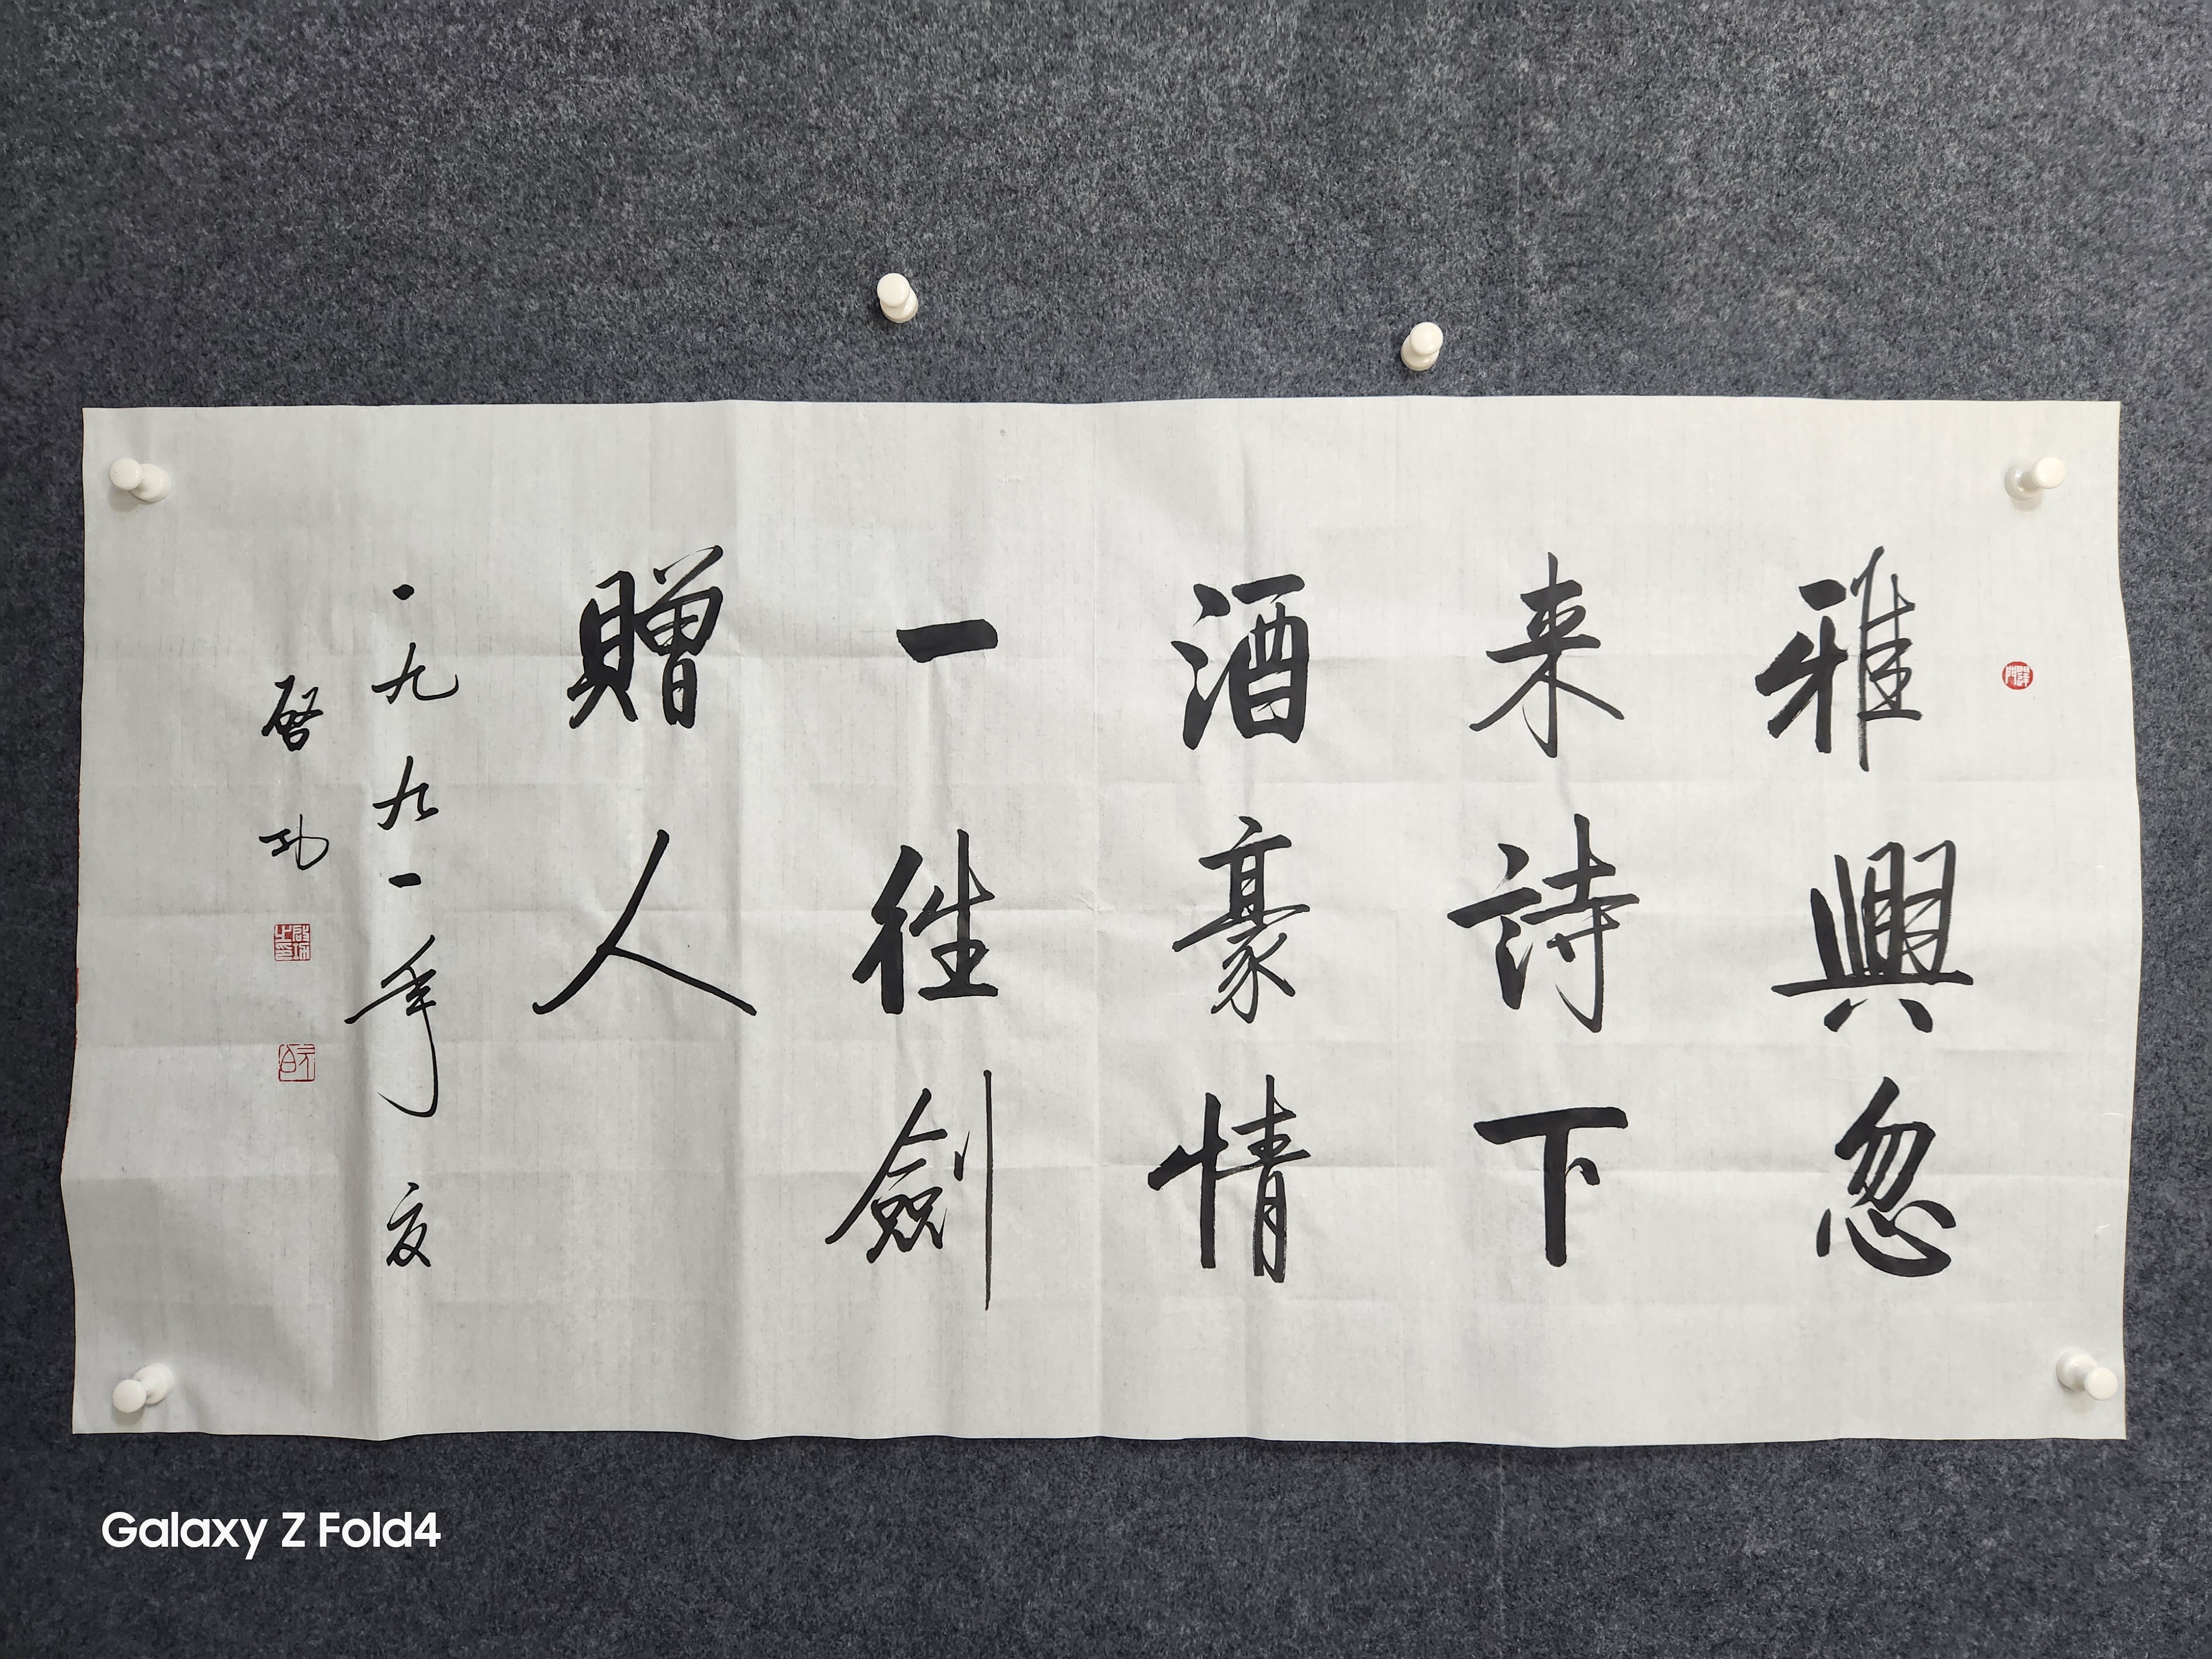 雅興忽
来詩下
酒豪情
一往劍
贈人
一九九一年夏
啓功
Galaxy Z Fold4